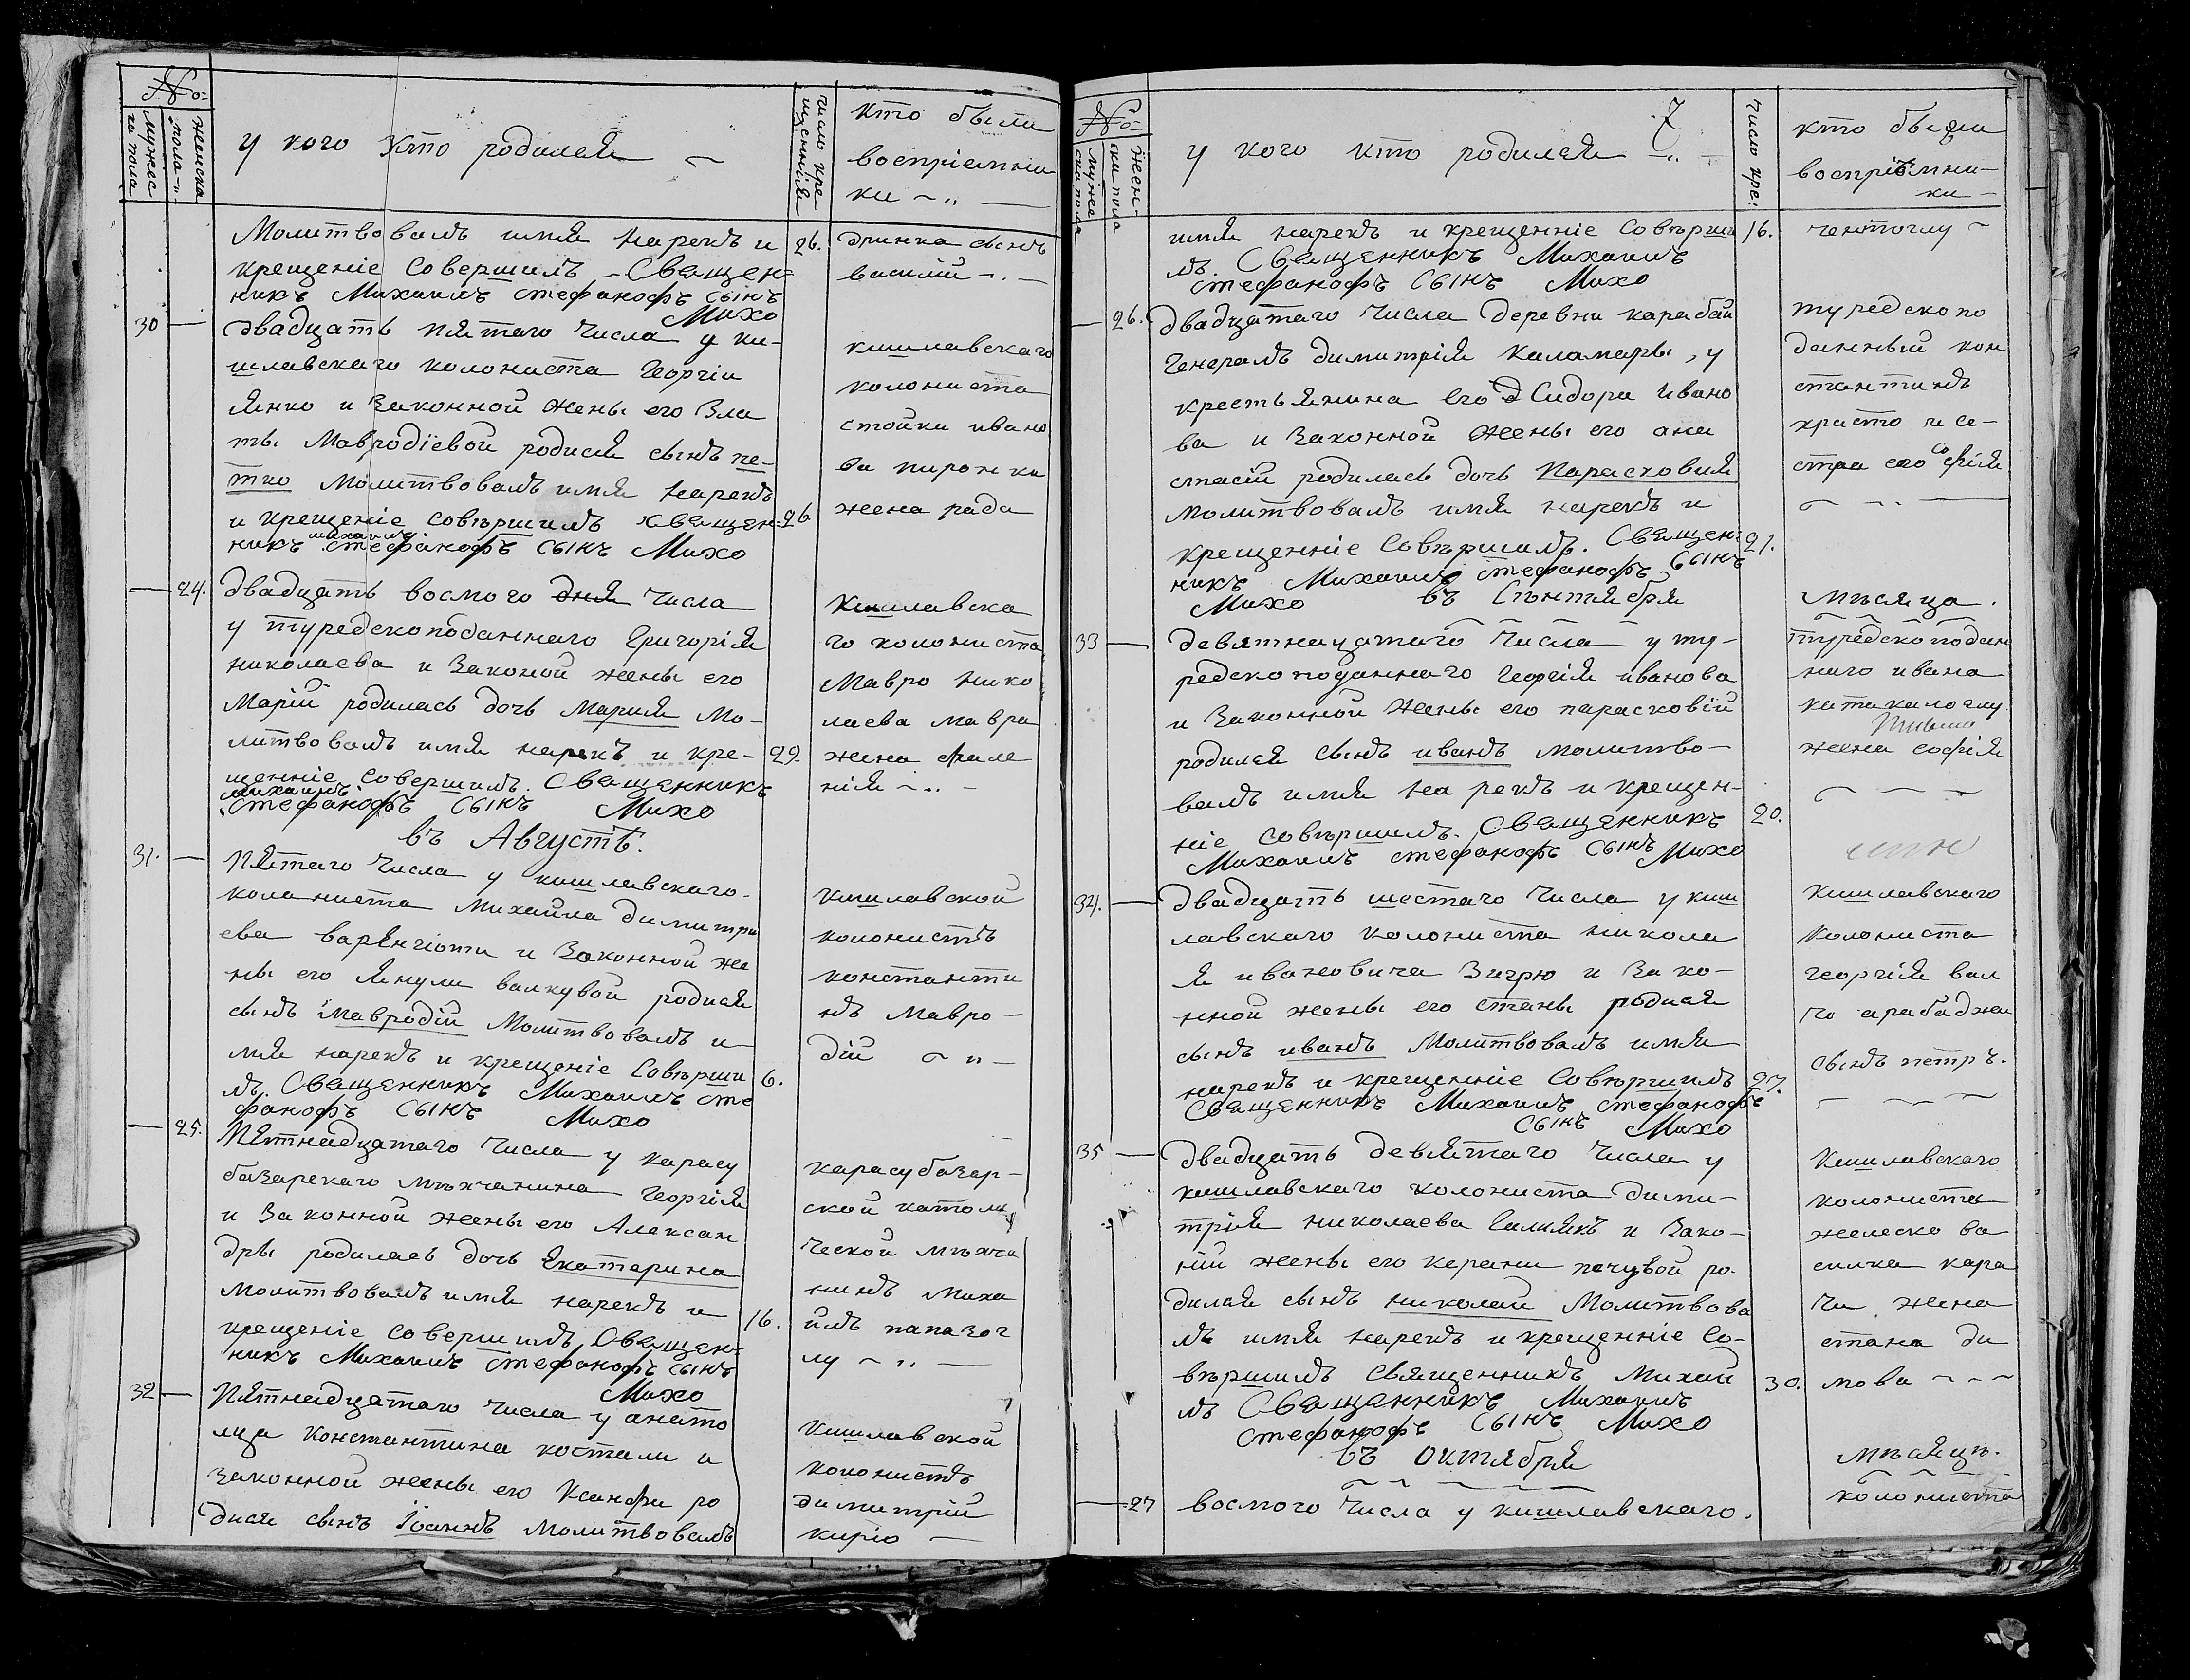 №
мужес
ка пола
женска
пола
у кого кто родился
число кре
щенния
кто были
воспріемни
ки
Молитвовалъ имя нарекъ и
крещеніе Совершилъ Свещен=
никъ Михаилъ стефанофъ Сынъ
Михо
26.
дринка сынъ
василій
30
двадцать пятаго числа у ки-
шлавскаго колониста Георгія
янко и Законной жены его Зла
ты Мавродіевой родися сынъ пе-
тко Молитвовалъ имя нарекъ
и крещеніе Совѣршилъ Свещен=
никъ михаилъ стефанофъ Сынъ Михо
26
кишлавскаго
колониста
стойки ивано
ва пиронки
жена рада
24.
двадцать восмого дня числа
у турецкоподаннаго Григорія
николаева и Законой жены его
Марій родилась дочь Мария Мо-
литвовалъ имя нарекъ и кре-
щенніе Совершилъ. Свещенникъ
михаилъ
стефанофъ Сынъ Михо
29.
Кишлавска
го колониста
Мавро нико
лаева мавра
жена
въ Августѣ.
31.
Пятаго числа у кишлавскаго
колониста Михаила димитри
ева и Законной же
ны его янули валкувой родися
сынъ Мавродій Молитвовалъ и
мя нарекъ и крещеніе Совѣрши
лъ. Свещенникъ Михаилъ сте
фанофъ Сынъ Михо
6.
кишлавской
колонистъ
константи
нъ Мавро-
дій
25.
Пятнадцатаго числа у карасу
базарскаго мѣщанина Георгія
и Законной жены его Алексан
дры родилась дочь Екатерина
Молитвовалъ имя нарекъ и
крещеніе Совершилъ Свещен=
никъ Михаилъ стефанофъ Сынъ
Михо
16.
карасубазар-
ской католи
ческой мѣща
нинъ Миха
илъ папазог
лу
32
Пятнадцатаго числа у анато
лца Константина костали и
Законной жены его Ксанфи ро
дися сынъ Іоаннъ Молитвовалъ
кишлавской
колонистъ
димитрій
кирію
7
№
муже
ска пола
жен-
ска пола
у кого кто родился
число кре:
кто были
воспріѣмни-
ки
имя нарекъ и крещенніе Совѣрши
лъ. Свещенникъ Михаилъ
стефанофъ Сынъ Михо
16.
26.
двадцатаго числа деревни карабай
Генералъ димитрія Каламары, у
крестьянина его Сидора ивано
ва и Законной жены его ана
стасій родилась дочь Парасковия
Молитвовалъ имя нарекъ и
крещенніе Совѣршилъ. Свещен=
никъ Михаилъ стефанофъ Сынъ
Михо
21.
турецкопо
данный кон
стантинъ
христо и се-
стра его Софія
въ Сѣнтября
мѣсяца.
33
девятнацатаго числа у ту-
рецкоподаннаго Георгія иванова
и Законной жены его парасковій
родился сынъ иванъ молитво-
валъ имя нарекъ и крещен-
ніе совѣршилъ. Свещенникъ
Михаилъ стефанофъ Сынъ Михо
20.
турецкоподан
наго ивана
катакалоглу
жена софія
34.
двадцать шестаго числа у киш
лавскаго колониста никола
я ивановича Зигрю и Зако-
нной жены его станы родися
сынъ иванъ Молитвовалъ имя
нарекъ и крещенніе Совѣршилъ
Свещенникъ Михаилъ стефанофъ
Сынъ Михо
27.
кишлавскаго
колониста
георгія вал
чо арабаджи
сынъ петръ.
35
двадцать девятаго числа у
кишлавскаго колониста дими-
трія николаева и Зако-
ній жены его керани пачувой ро-
дился сынъ николай Молитвова
лъ имя нарекъ и крещенніе Со-
вѣршилъ священникъ Михаи
лъ Свещенникъ Михаилъ
стефанофъ Сынъ Михо
30.
кишлавскаго
колониста
желеско ва
силка кара
чи жена
стана ди
мова
въ октября
мѣсяцъ.
27
восмого числа у кишлавскаго.
колониста